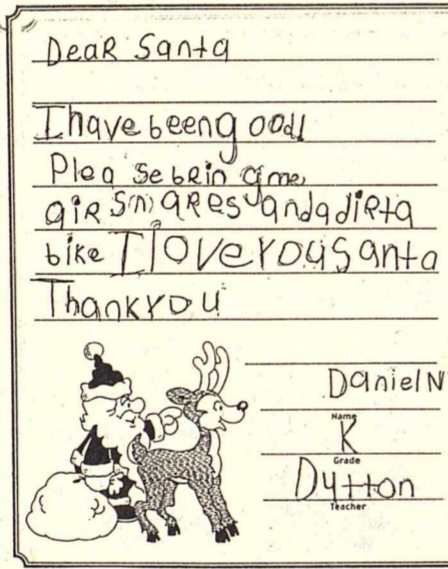 Dear Santa
I have been good
Please bring me
air smares and a dirta
bike I love you Santa
Thank you
Daniel N
Name
K
Grade
Dutton
Teacher